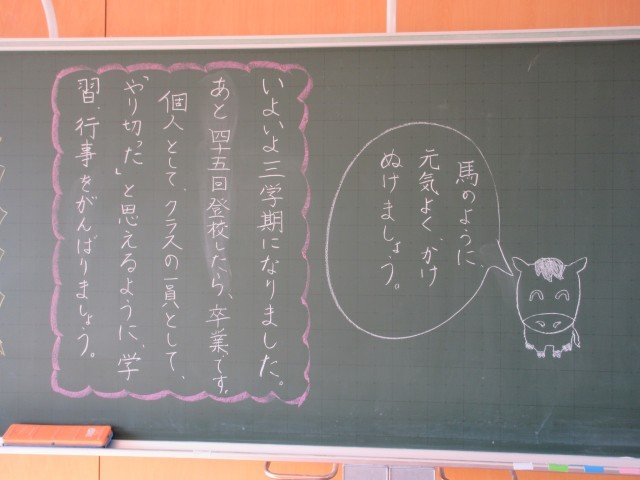 馬のように、
元気よく、かけ
ぬけましょう。
いよいよ三学期になりました。
あと四十五回登校したら、卒業です。
個人として、クラスの一員として、
「やり切った」と思えるように、学
習、行事をがんばりましょう。